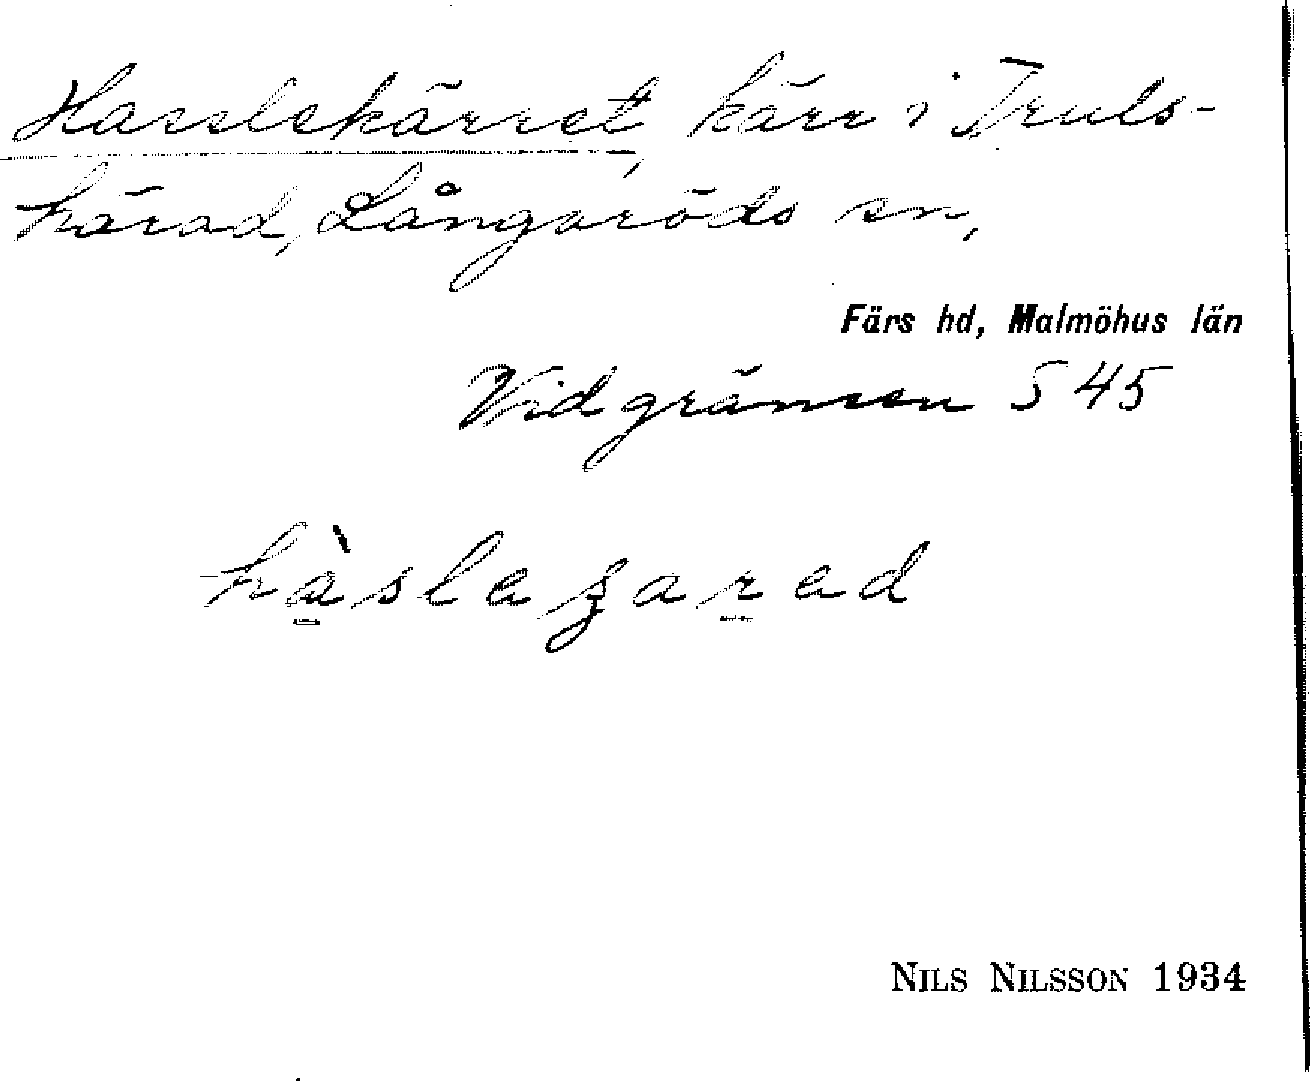 Hasslekärret, kärr i Truls-
härad, Långaröds sn,
Färs hd, Malmöhus län
Vid gränsen S 45
NILS NILSSON 1934